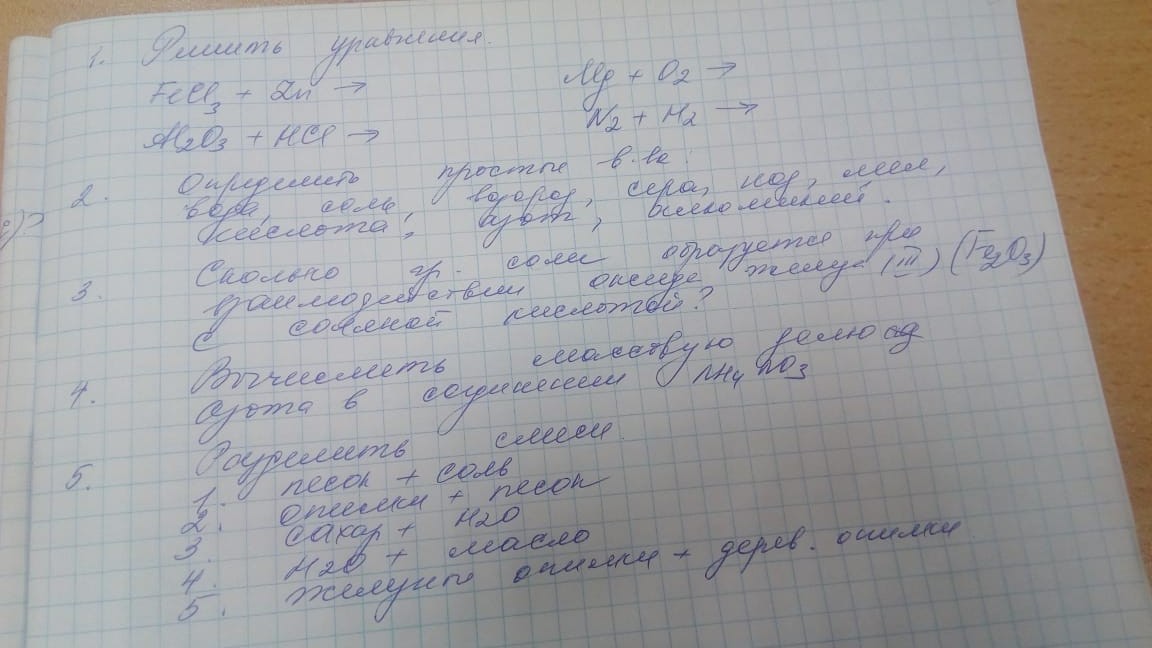 1. Решить уравнения.
FeCl3 + Zn → Mg + O2 →
Al2O3 + HCl → N2 + H2 →
2. Определить простые в-ва:
вода, соль, водород, сера, йод, мел,
кислота, азот, алюминий.
3. Сколько гр. соли образуется при
взаимодействии оксида железа (III) (Fe2O3)
с соляной кислотой?
4. Вычислить массовую долю
азота в соединении NH4NO3
5. Разделить смеси
1. песок + соль
2. опилки + песок
3. сахар + H2O
4. H2O + масло
5. железные опилки + дерев. опилки